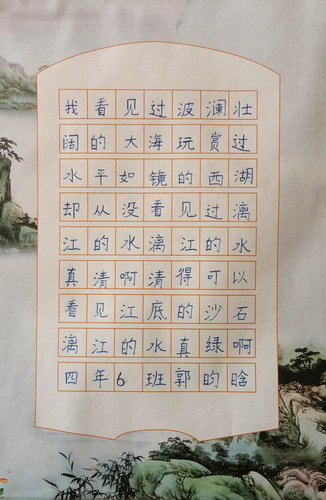 我看见过波澜壮
阔的大海玩赏过
水平如镜的西湖
却从没看见过漓
江的水漓江的水
真清啊清得可以
看见江底的沙石
漓江的水真绿啊
四年6班郭昀晗